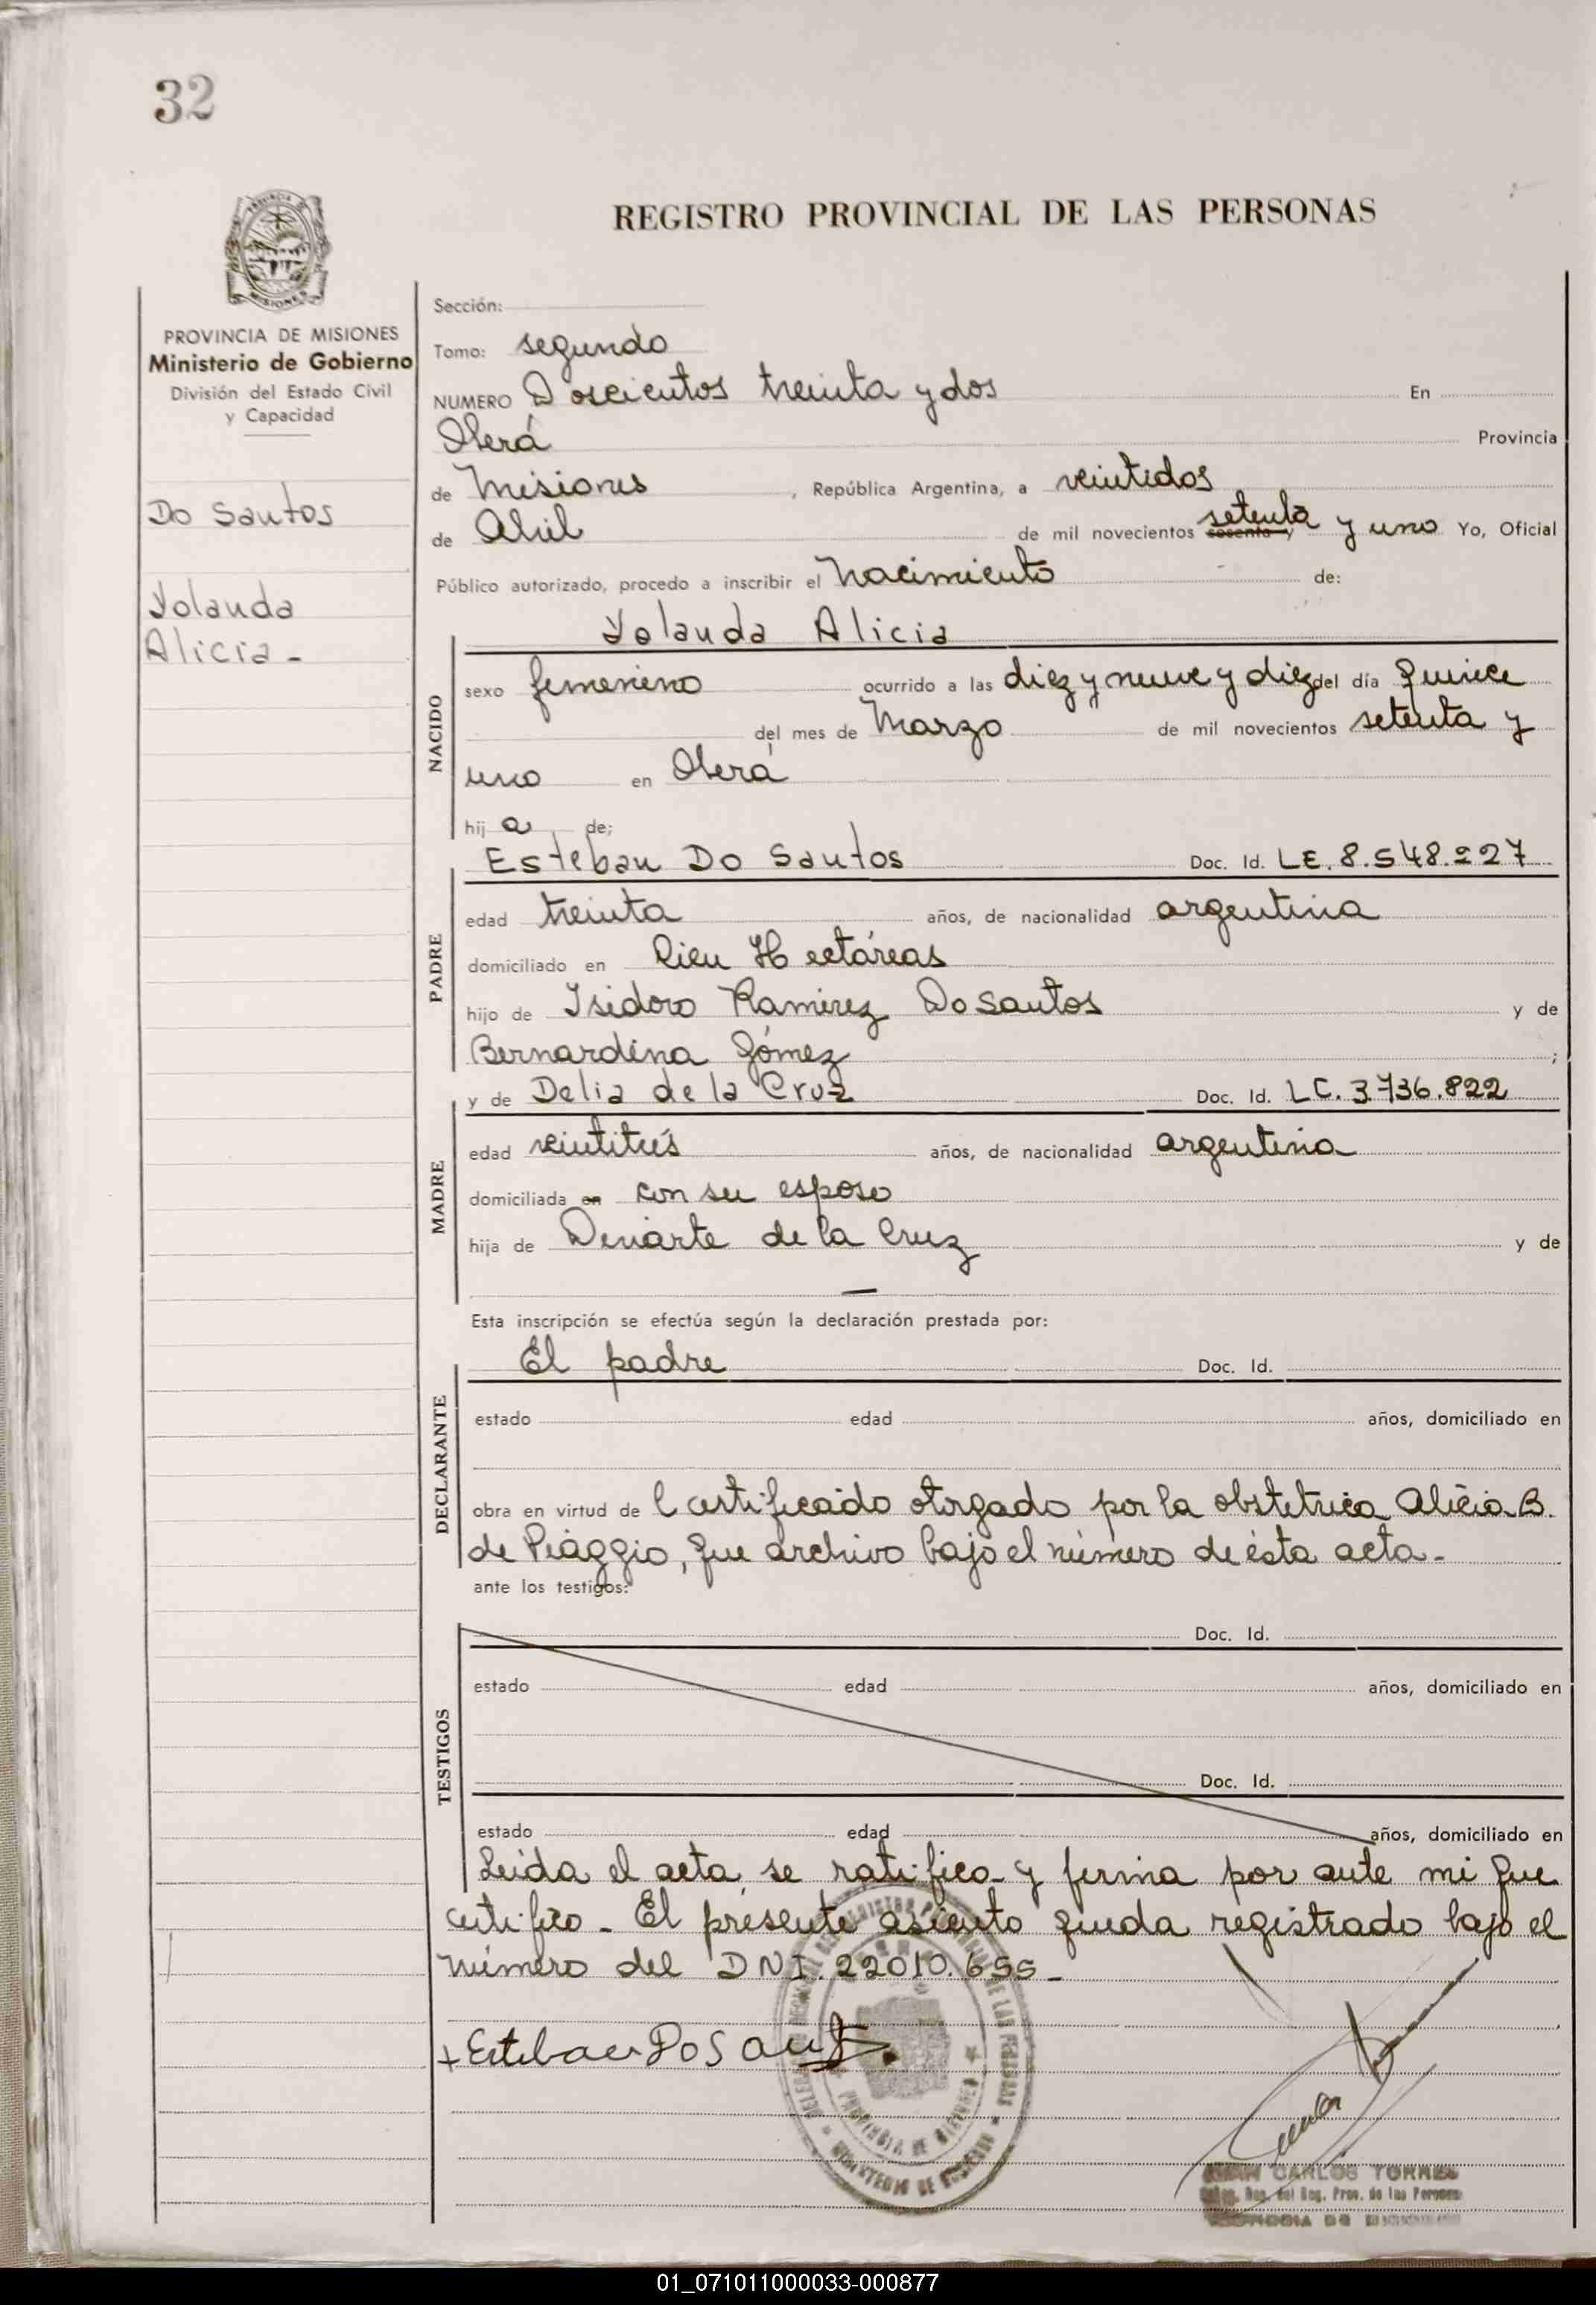 32
REGISTRO PROVINCIAL DE LAS PERSONAS
PROVINCIA DE MISIONES
Ministerio de Gobierno
División del Estado Civil
y Capacidad
Do Santos
Yolanda
Alicia -
Sección:
Tomo: segundo
NUMERO Doscientos treinta y dos En
Oberá Provincia
de Misiones, República Argentina, a veintidos
de Abril de mil novecientos sesenta y setenta y uno Yo, Oficial
Público autorizado, procedo a inscribir el Nacimiento de:
Yolanda Alicia
NACIDO
sexo femenino ocurrido a las diez y nueve y diez del día quince
del mes de Marzo de mil novecientos setenta y
uno en Oberá
hija de;
Esteban Do Santos Doc. Id. LE. 8.548.227
PADRE
edad treinta años, de nacionalidad argentina
domiciliado en Cien Hectáreas
hijo de Isidoro Ramirez Do Santos y de
Bernardina Gómez ;
y de Delia de la Cruz Doc. Id. LC. 3.736.822
MADRE
edad veintitrés años, de nacionalidad argentina
domiciliada en con su esposo
hija de de la Cruz y de
—
Esta inscripción se efectúa según la declaración prestada por:
El padre Doc. Id.
DECLARANTE
estado edad años, domiciliado en
obra en virtud de l certificado otorgado por la obstetrica Alicia B.
de Piaggio, que archivo bajo el número de ésta acta -
ante los testigos:
Doc. Id.
TESTIGOS
estado edad años, domiciliado en
Doc. Id.
estado edad años, domiciliado en
Leida el acta, se ratifica y firma por ante mi que
certifico - El presente asiento queda registrado bajo el
número del DNI. 22010.655 -
+ Esteban Do Sant
PROVINCIA DE MISIONES
MINISTERIO DE GOBIERNO
JUAN CARLOS TORRES
del Reg. Prov. de las Personas
PROVINCIA DE MISIONES
01_071011000033-000877